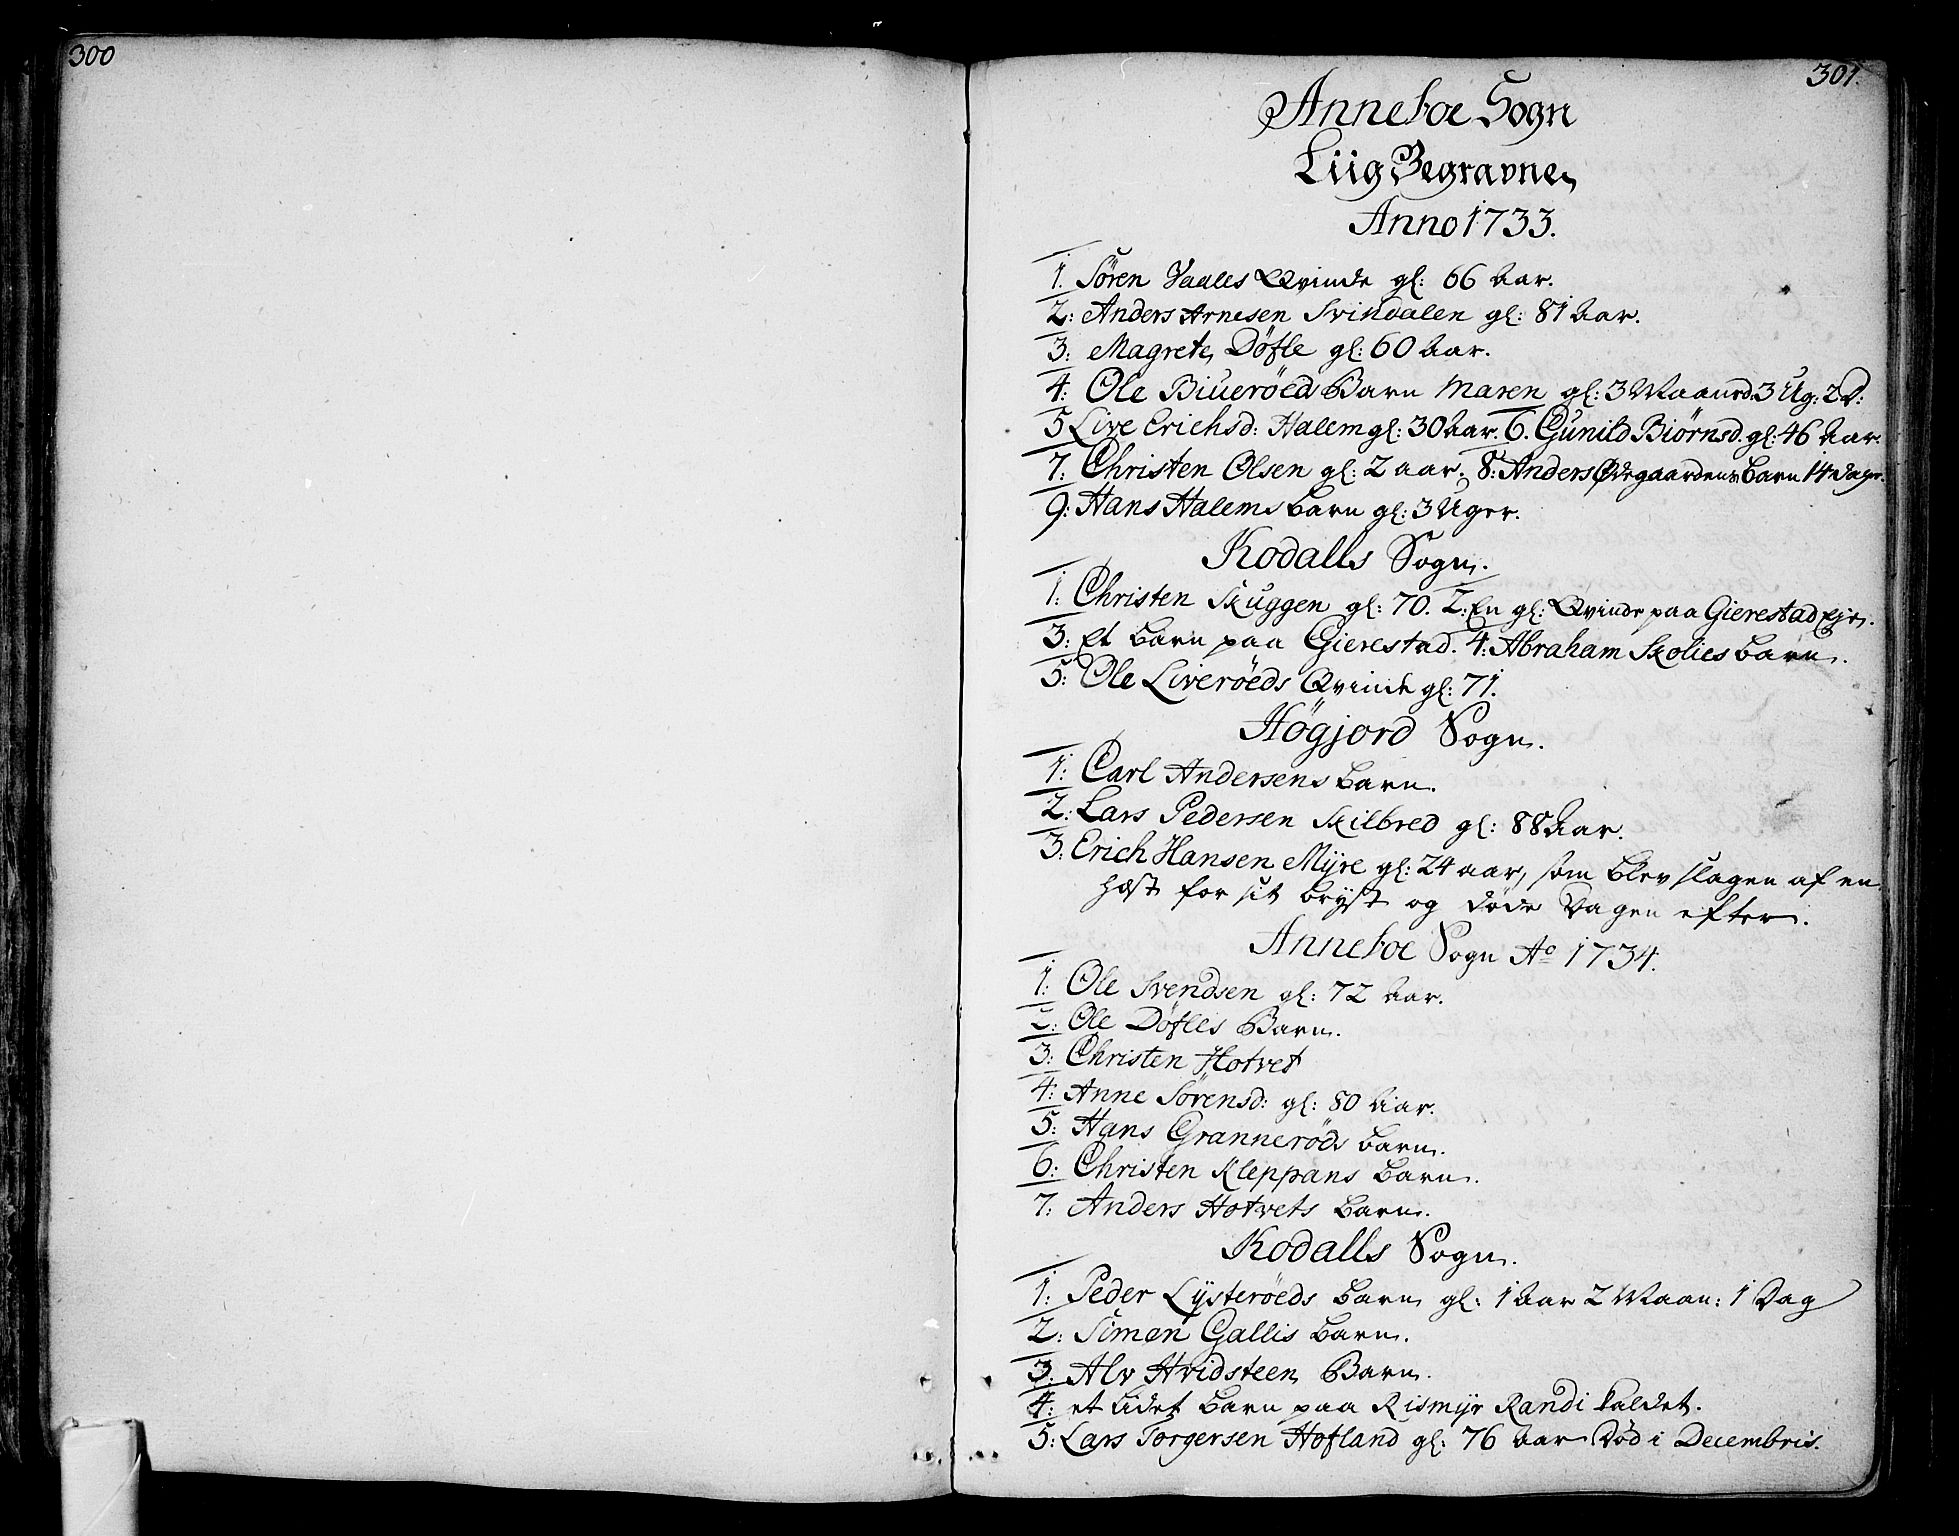 300
301.
Anneboe Sogn
Liig Begravne
Anno 1733.
1. Sören Vaales Qvinde gl: 66 Aar.
2: Anders Arnesen Svindalen gl: 81 Aar.
3: Magrete Döfle gl: 60 Aar.
4: Ole Biueröeds Barn Maren gl: 3 Maaned 3 Ug: 2 D:
5 Live Erichsd: Halem gl: 30 Aar. 6. Gunild Biörnsd. gl: 46 Aar.
7: Christen Olsen gl: 2 aar. 8: Anders Ødegaardens barn 14 dage.
9: Hans Halems barn gl: 3 Uger.
Kodalls Sogn.
1: Christen Skuggen gl: 70. 2: En gl: Qvinde paa Gierestad Eje.
3: Et barn paa Gierestad. 4: Abraham Skolies barn.
5: Ole Liveröeds Qvinde gl: 71.
Högjord Sogn.
1: Carl Andersens barn.
2: Lars Pedersen Skilbred gl: 88 Aar.
3: Erich Hansen Myre gl: 24 aar, som blev slagen af en
hæst for sit bryst og döde Dagen efter.
Anneboe Sogn Ao 1734.
1: Ole Svendsen gl: 72 Aar.
2: Ole Döfles Barn.
3: Christen Hotvet
4: Anne Sörensd: gl: 80 Aar.
5: Hans Granneröds barn.
6: Christen Kleppans barn.
7: Anders Hotvets barn.
Kodalls Sogn.
1: Peder Lysteröeds barn gl: 1 Aar 2 Maan: 1 Dag
2: Simen Gallis barn.
3. Alv Hvidsteen Barn.
4: et lidet barn paa Rismyr Randi kaldet.
5: Lars Torgersen Hofland gl: 76 Aar Död i Decembris.